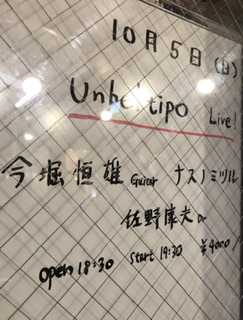 10月5日(日)
Unbeltipo Live!
今堀恒雄 Guitar ナスノミツル
佐野康夫 Dr
open 18:30 start 19:30 ¥4000